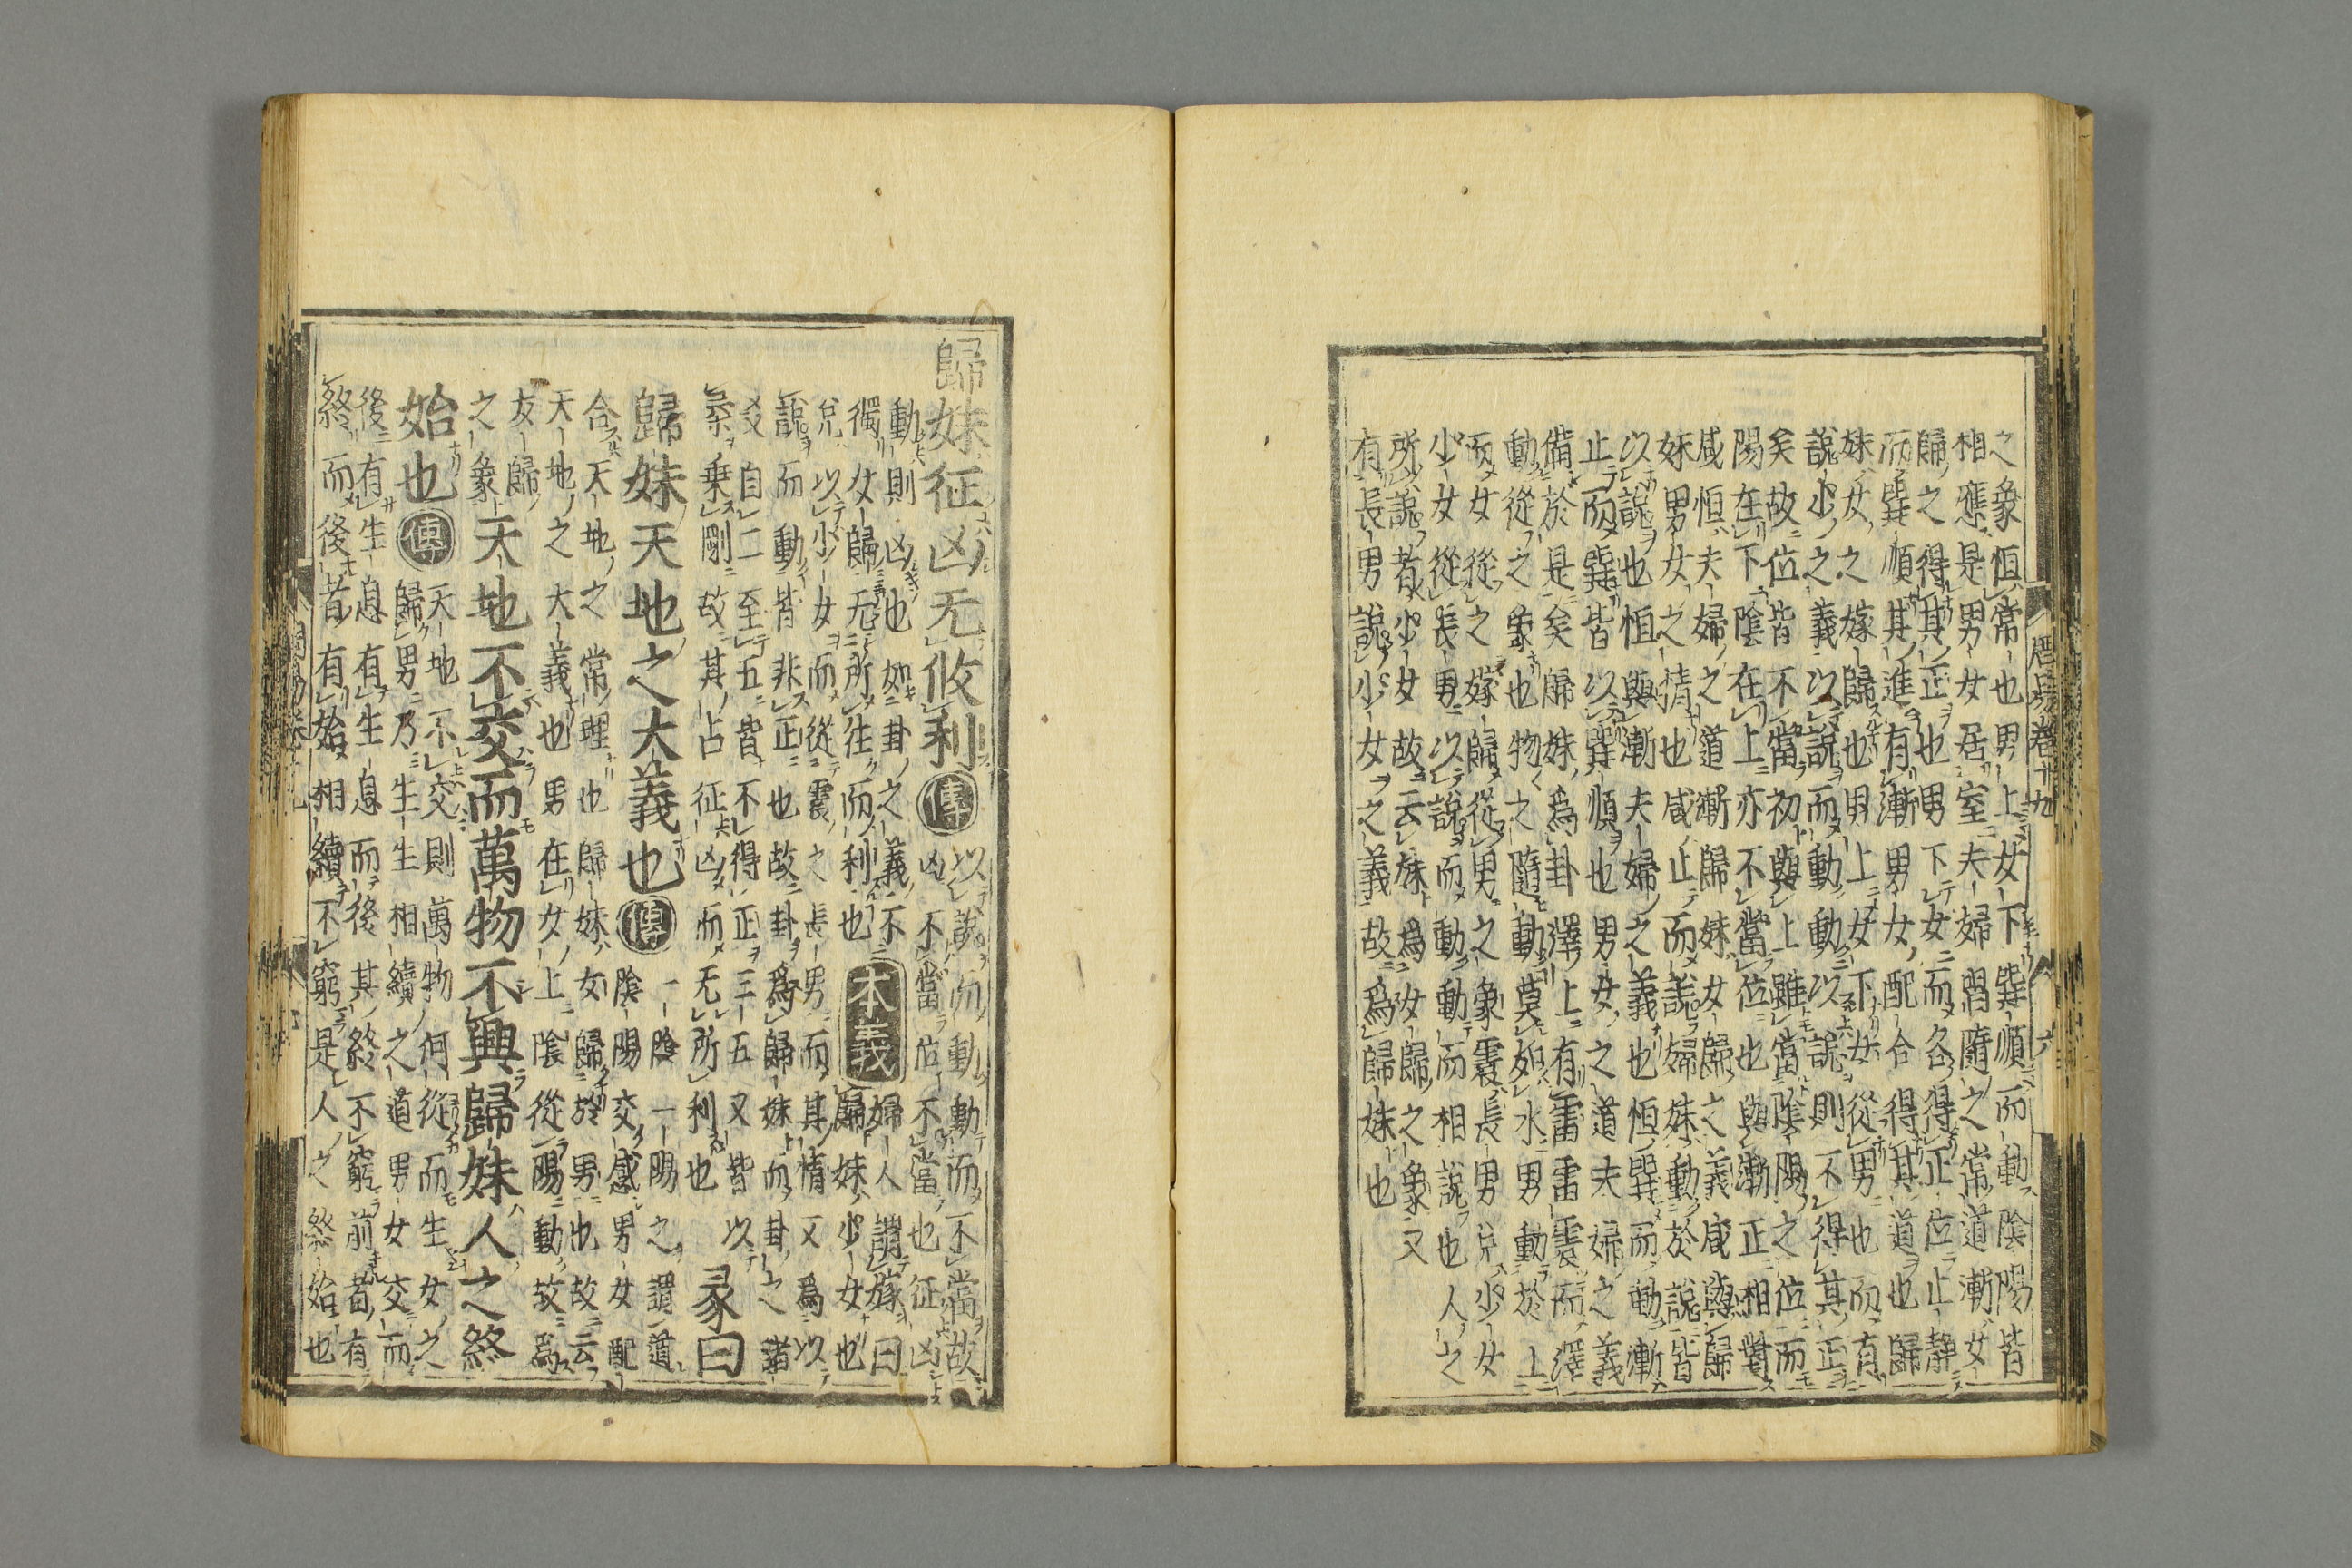 之象恒常也男上女下巽順而動陰陽皆
相應是男女居室夫婦唱隨之常道漸女
歸之得其正也男下女而各得正位止靜
而巽順其進有漸男女配合得其道也歸
妹女之嫁歸也男上女下女從男也而有
說少之義以說而動動以說則不得其正
矣故位皆不當初與上雖當陰陽之位而
陽在下陰在上亦不當位也與漸正相對
咸恒夫婦之道漸歸妹女歸之義咸與歸
妹男女之情也咸止而說婦妹動於說皆
以說也恒與漸夫婦之義也恒巽而動漸
止而巽皆以巽順也男女之道夫婦之義
備於是矣歸妹爲卦澤上有雷雷震而澤
動從之象也物之隨動莫如水男動於上
而女從之嫁歸從男之象震長男兌少女
少女從長男以說而動動而相說也人之
所說者少女故云妹爲女歸之象又
有長男說少女之義故爲歸妹也
周易卷十九 六
歸妹征凶无攸利 傳 以說而動動而不當故
凶不當位不當也征凶
動則凶也如卦之義不
獨女歸无所往而利也 本義 婦人謂嫁曰
歸妹少女也
兌以少女而從震之長男而其情又爲以
說而動皆非正也故卦爲歸妹而卦之諸
爻自二至五皆不得正三五又皆以
柔乘剛故其占征凶而无所利也 彖曰
歸妹天地之大義也 傳 一陰一陽之謂道
陰陽交感男女配
合天地之常理也歸妹女歸於男也故云
天地之大義也男在女上陰從陽動故爲
女歸
之象 天地不交而萬物不興歸妹人之終
始也 傳 天地不交則萬物何從而生女之
歸男乃生生相續之道男女交而
後有生息有生息而後其終不窮前者有
終而後者有始相續不窮是人之終始也